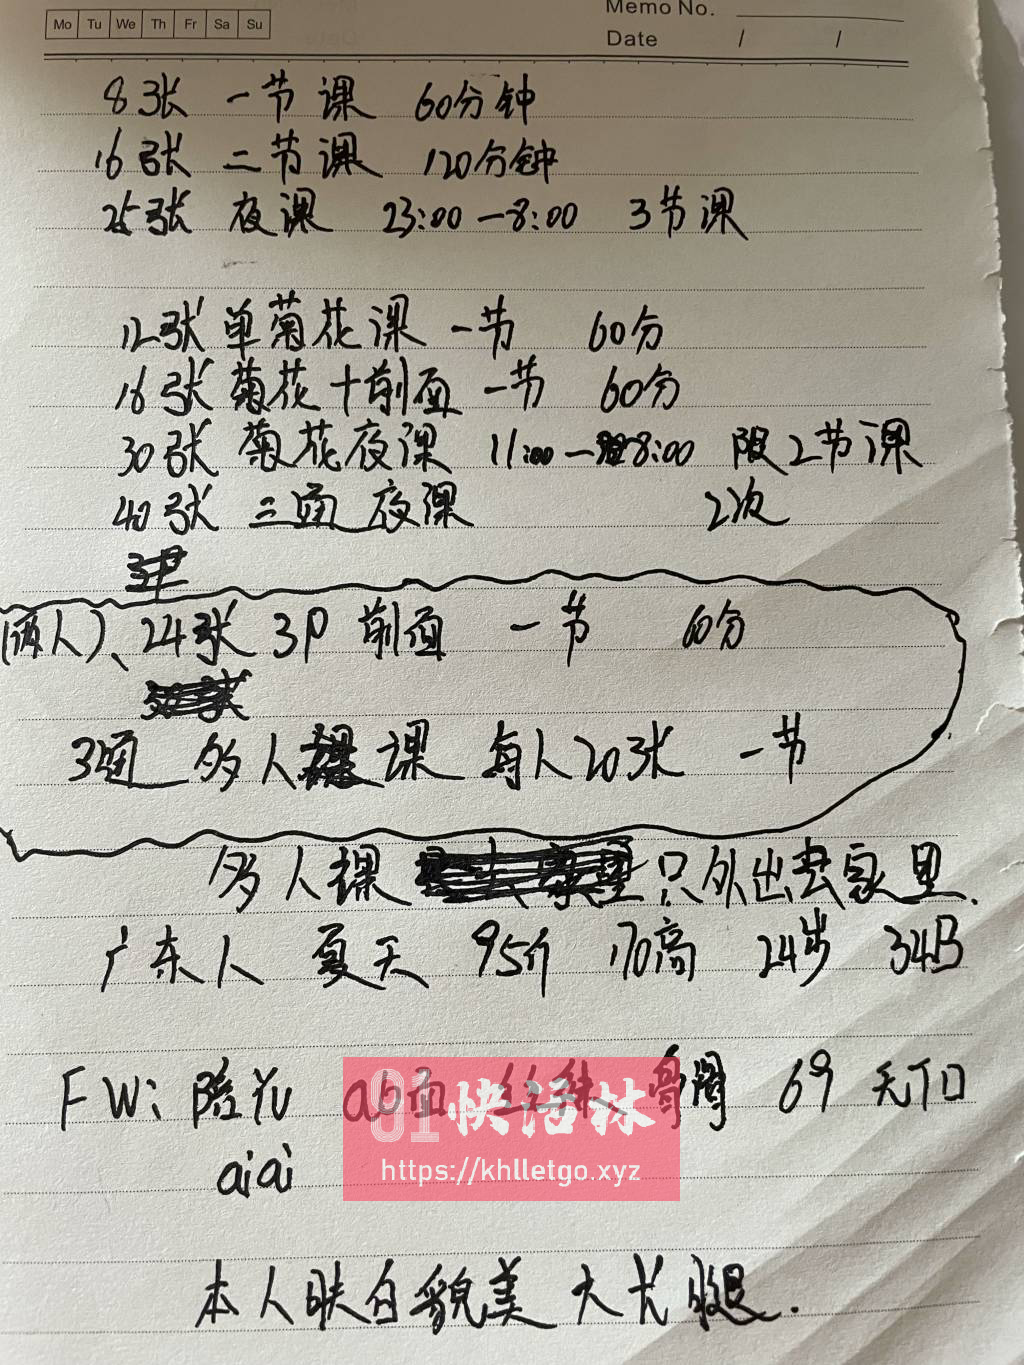 Mo Tu We Th Fr Sa Su
Memo No.
Date / /
8张 一节课 60分钟
16张 二节课 120分钟
25张 夜课 23:00—8:00 3节课
12张 单菊花课 一节 60分
16张 菊花+前面 一节 60分
30张 菊花夜课 11:00—8:00 限2节课
40张 三通 夜课 2次
(两人)、24张 3P 前面 一节 60分
3通 多人课 每人20张 一节
多人课 只外出去家里.
广东人 夏天 95斤 170高 24岁 34B
FW: 陪 ab面 丝袜、 69 无TD
aiai
01快活林
https://khlletgo.xyz
本人肤白貌美 大长腿.